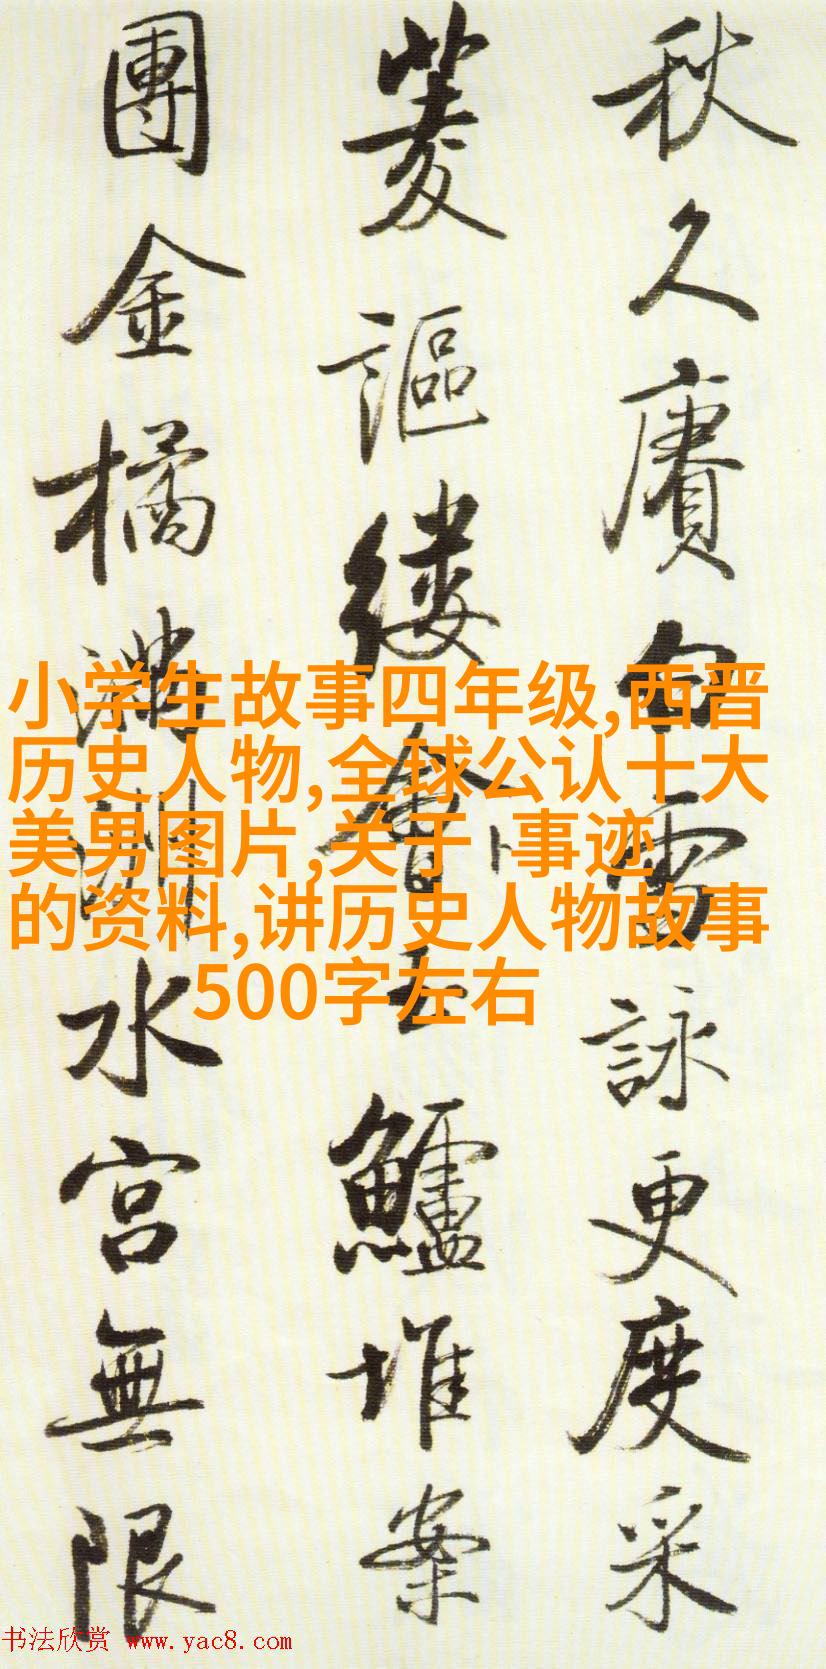 秋久賡白雪詠更度采
菱謳縷會玉鱸堆案
團金橘滿洲水宮無限
小学生故事四年级,西晋
历史人物,全球公认十大
美男图片,关于 事迹
的资料,讲历史人物故事
500字左右
书法欣赏 www.yac8.com